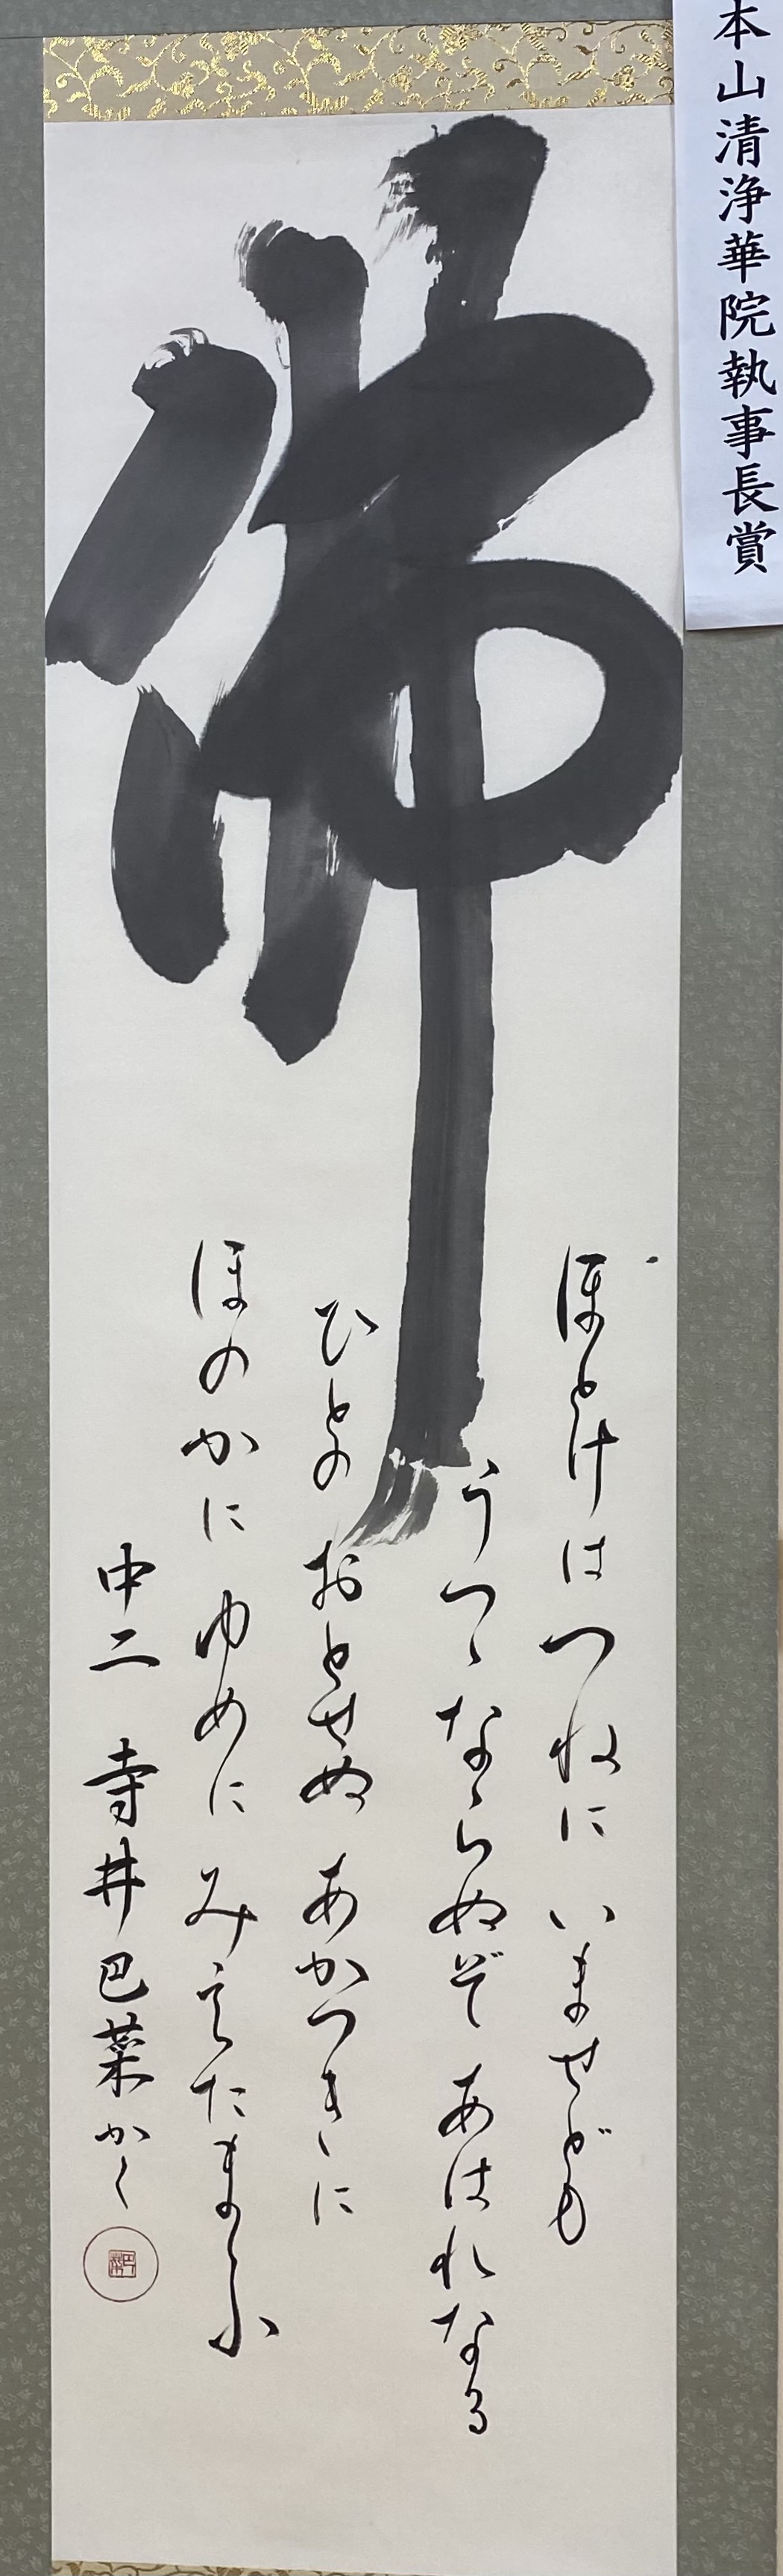 本山清浄華院執事長賞
佛
ほとけはつねにいませども
うつゝならぬぞあはれなる
ひとのおとせぬあかつきに
ほのかにゆめにみえたまふ
中二 寺井巴菜かく
巴菜